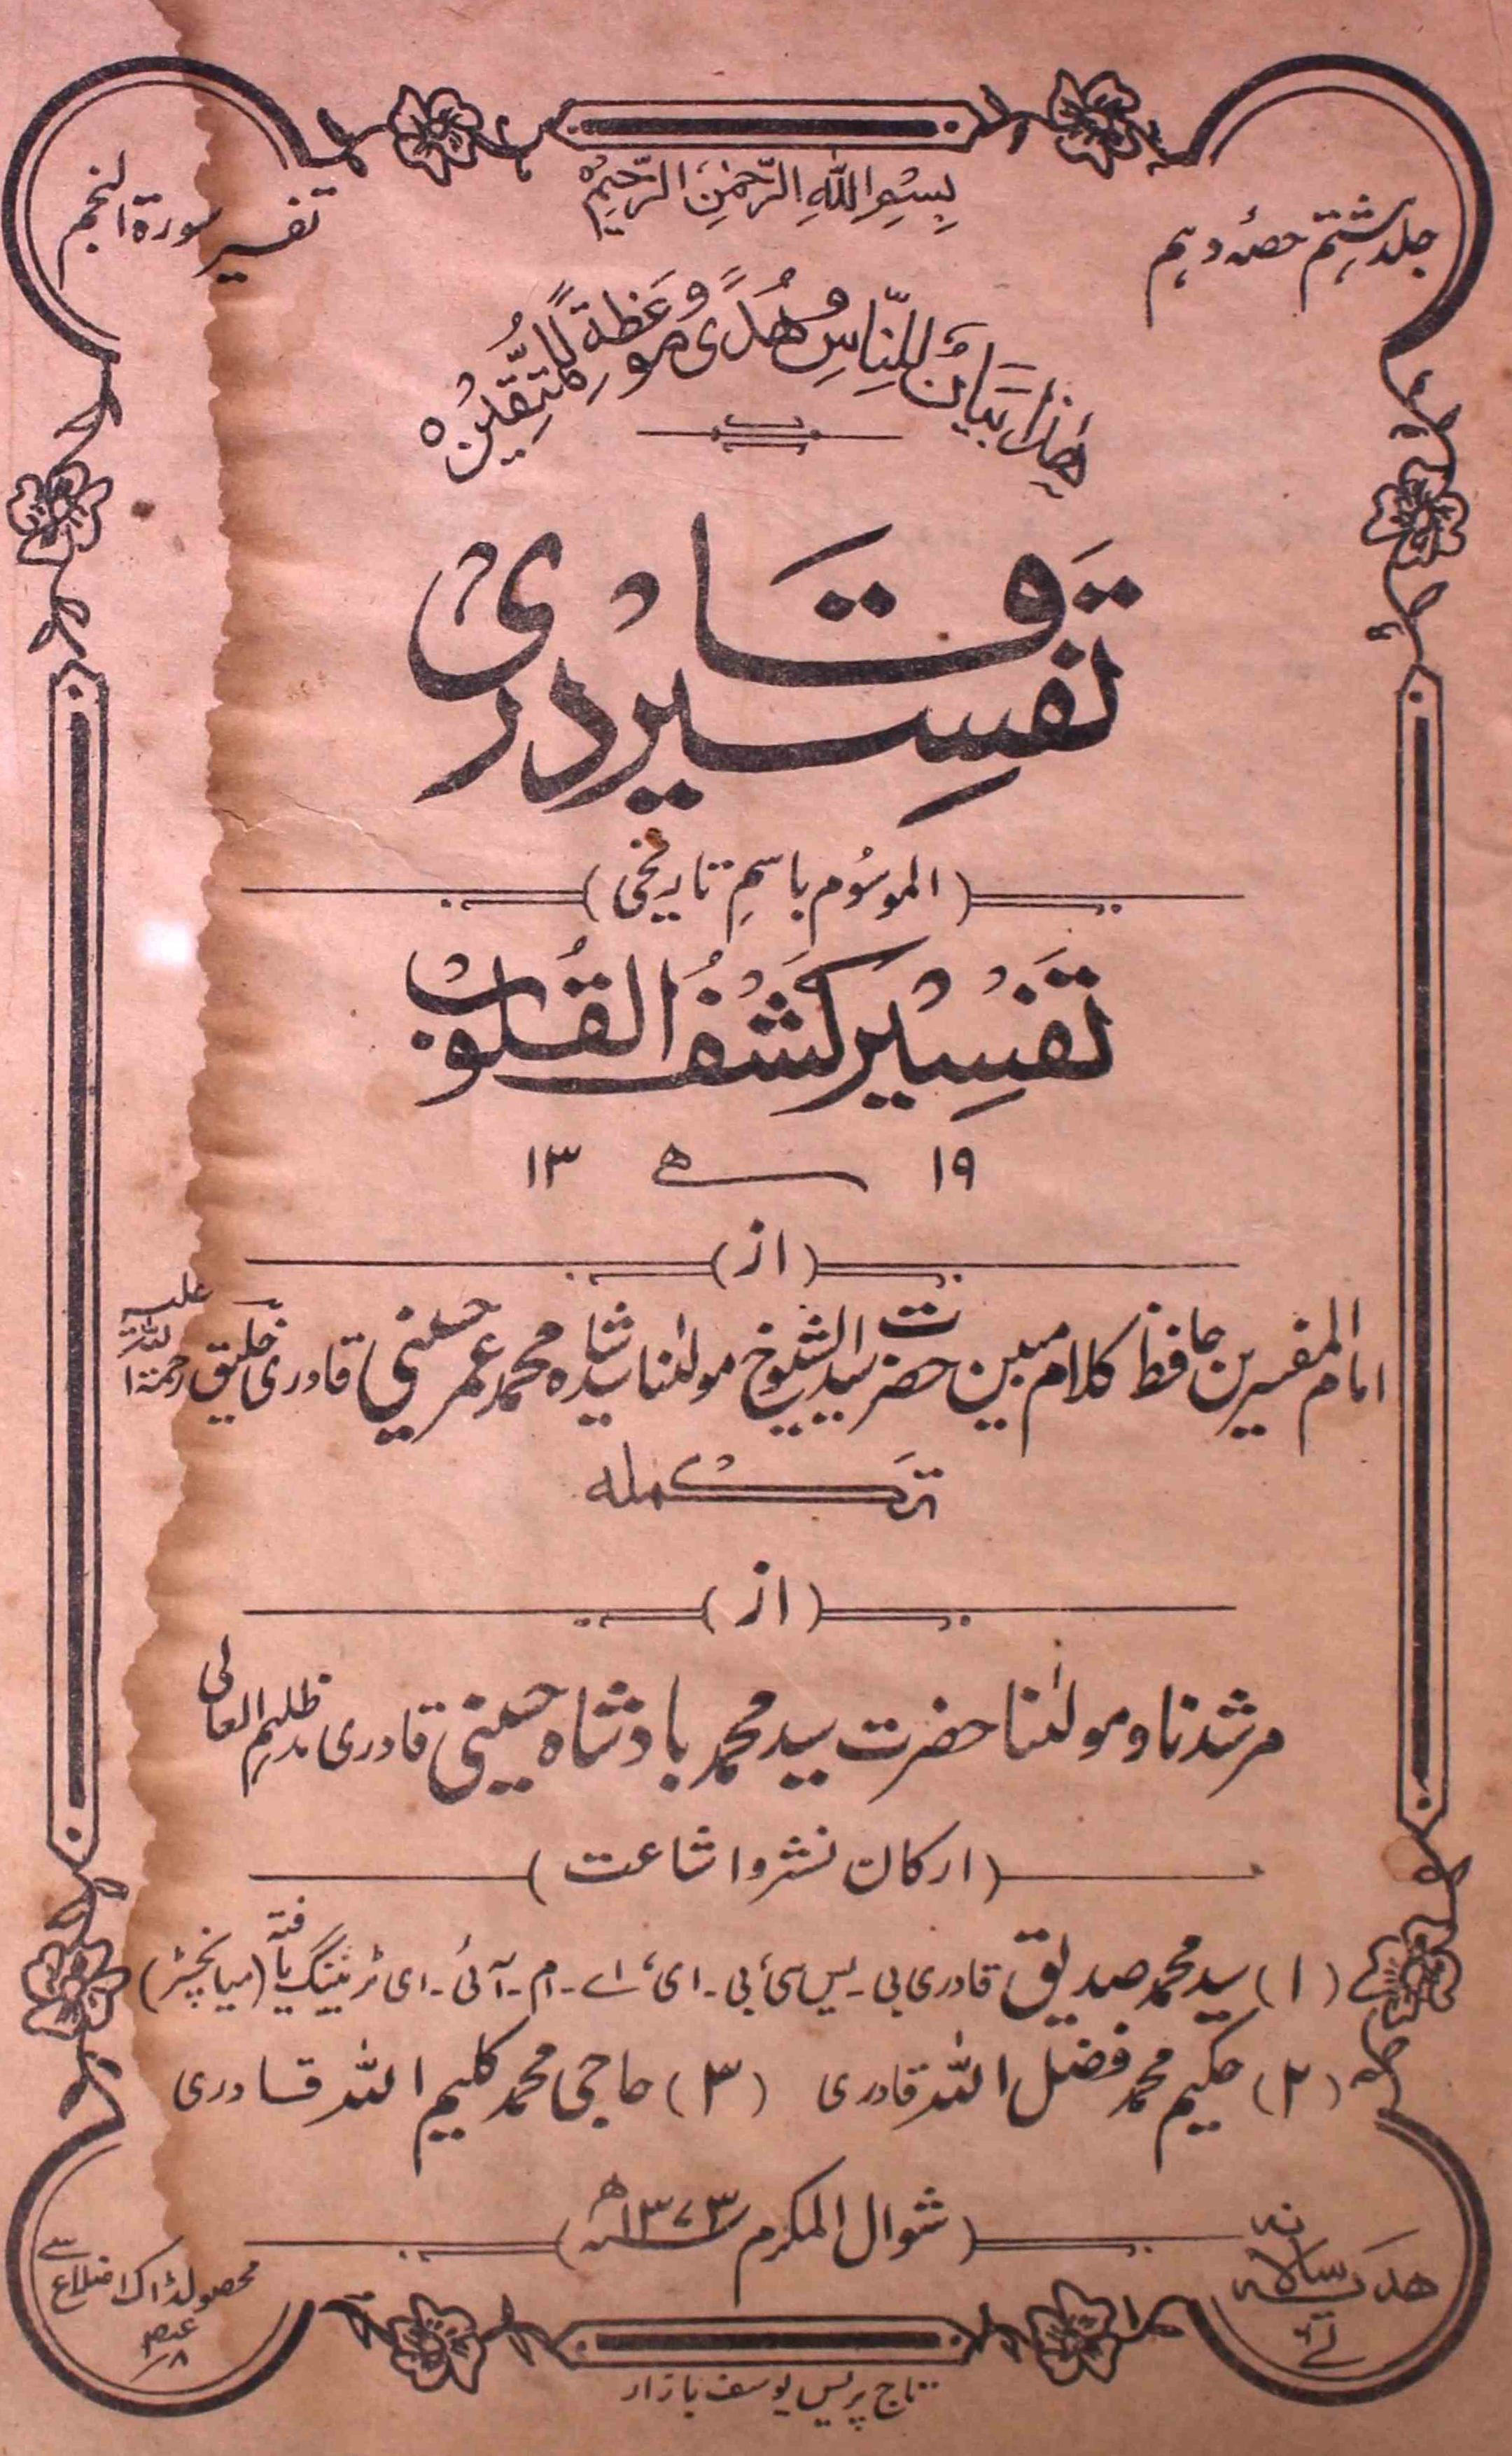 جلد ششم حصہ دہم
تفسیر سورۃ النجم
بِسْمِ اللّٰهِ الرَّحْمٰنِ الرَّحِيْمِ
هٰذَا بَيَانٌ لِّلنَّاسِ وَهُدًى وَّمَوْعِظَةٌ لِّلْمُتَّقِيْنَ
تفسیر قادری
(الموسُوم باسمِ تاریخی)
تَفْسِیْر کَشْفُ الْقُلُوْب
۱۳ ھ ۱۹
(از)
امام المفسرین حافظ کلام مبین حضرت سید الشیوخ مولٰنا سید شاہ محمد عمر حسینی قادری خلیق رحمۃ اللہ علیہ
تکملہ
(از)
مرشدنا و مولٰنا حضرت سید محمد بادشاہ حسینی قادری مدظلہم العالی
(ارکان نشر و اشاعت)
(۱) سید محمد صدیق قادری بی۔یس سی، بی۔ای، اے۔ام۔آئی۔ای ٹریننگ یافتہ (میانچسٹر)
(۲) حکیم محمد فضل اللہ قادری (۳) حاجی محمد کلیم اللہ قادری
(شوال المکرم ۱۳۷۳ھ)
سالانہ
محصول ڈاک اضلاع سے
تاج پریس یوسف بازار